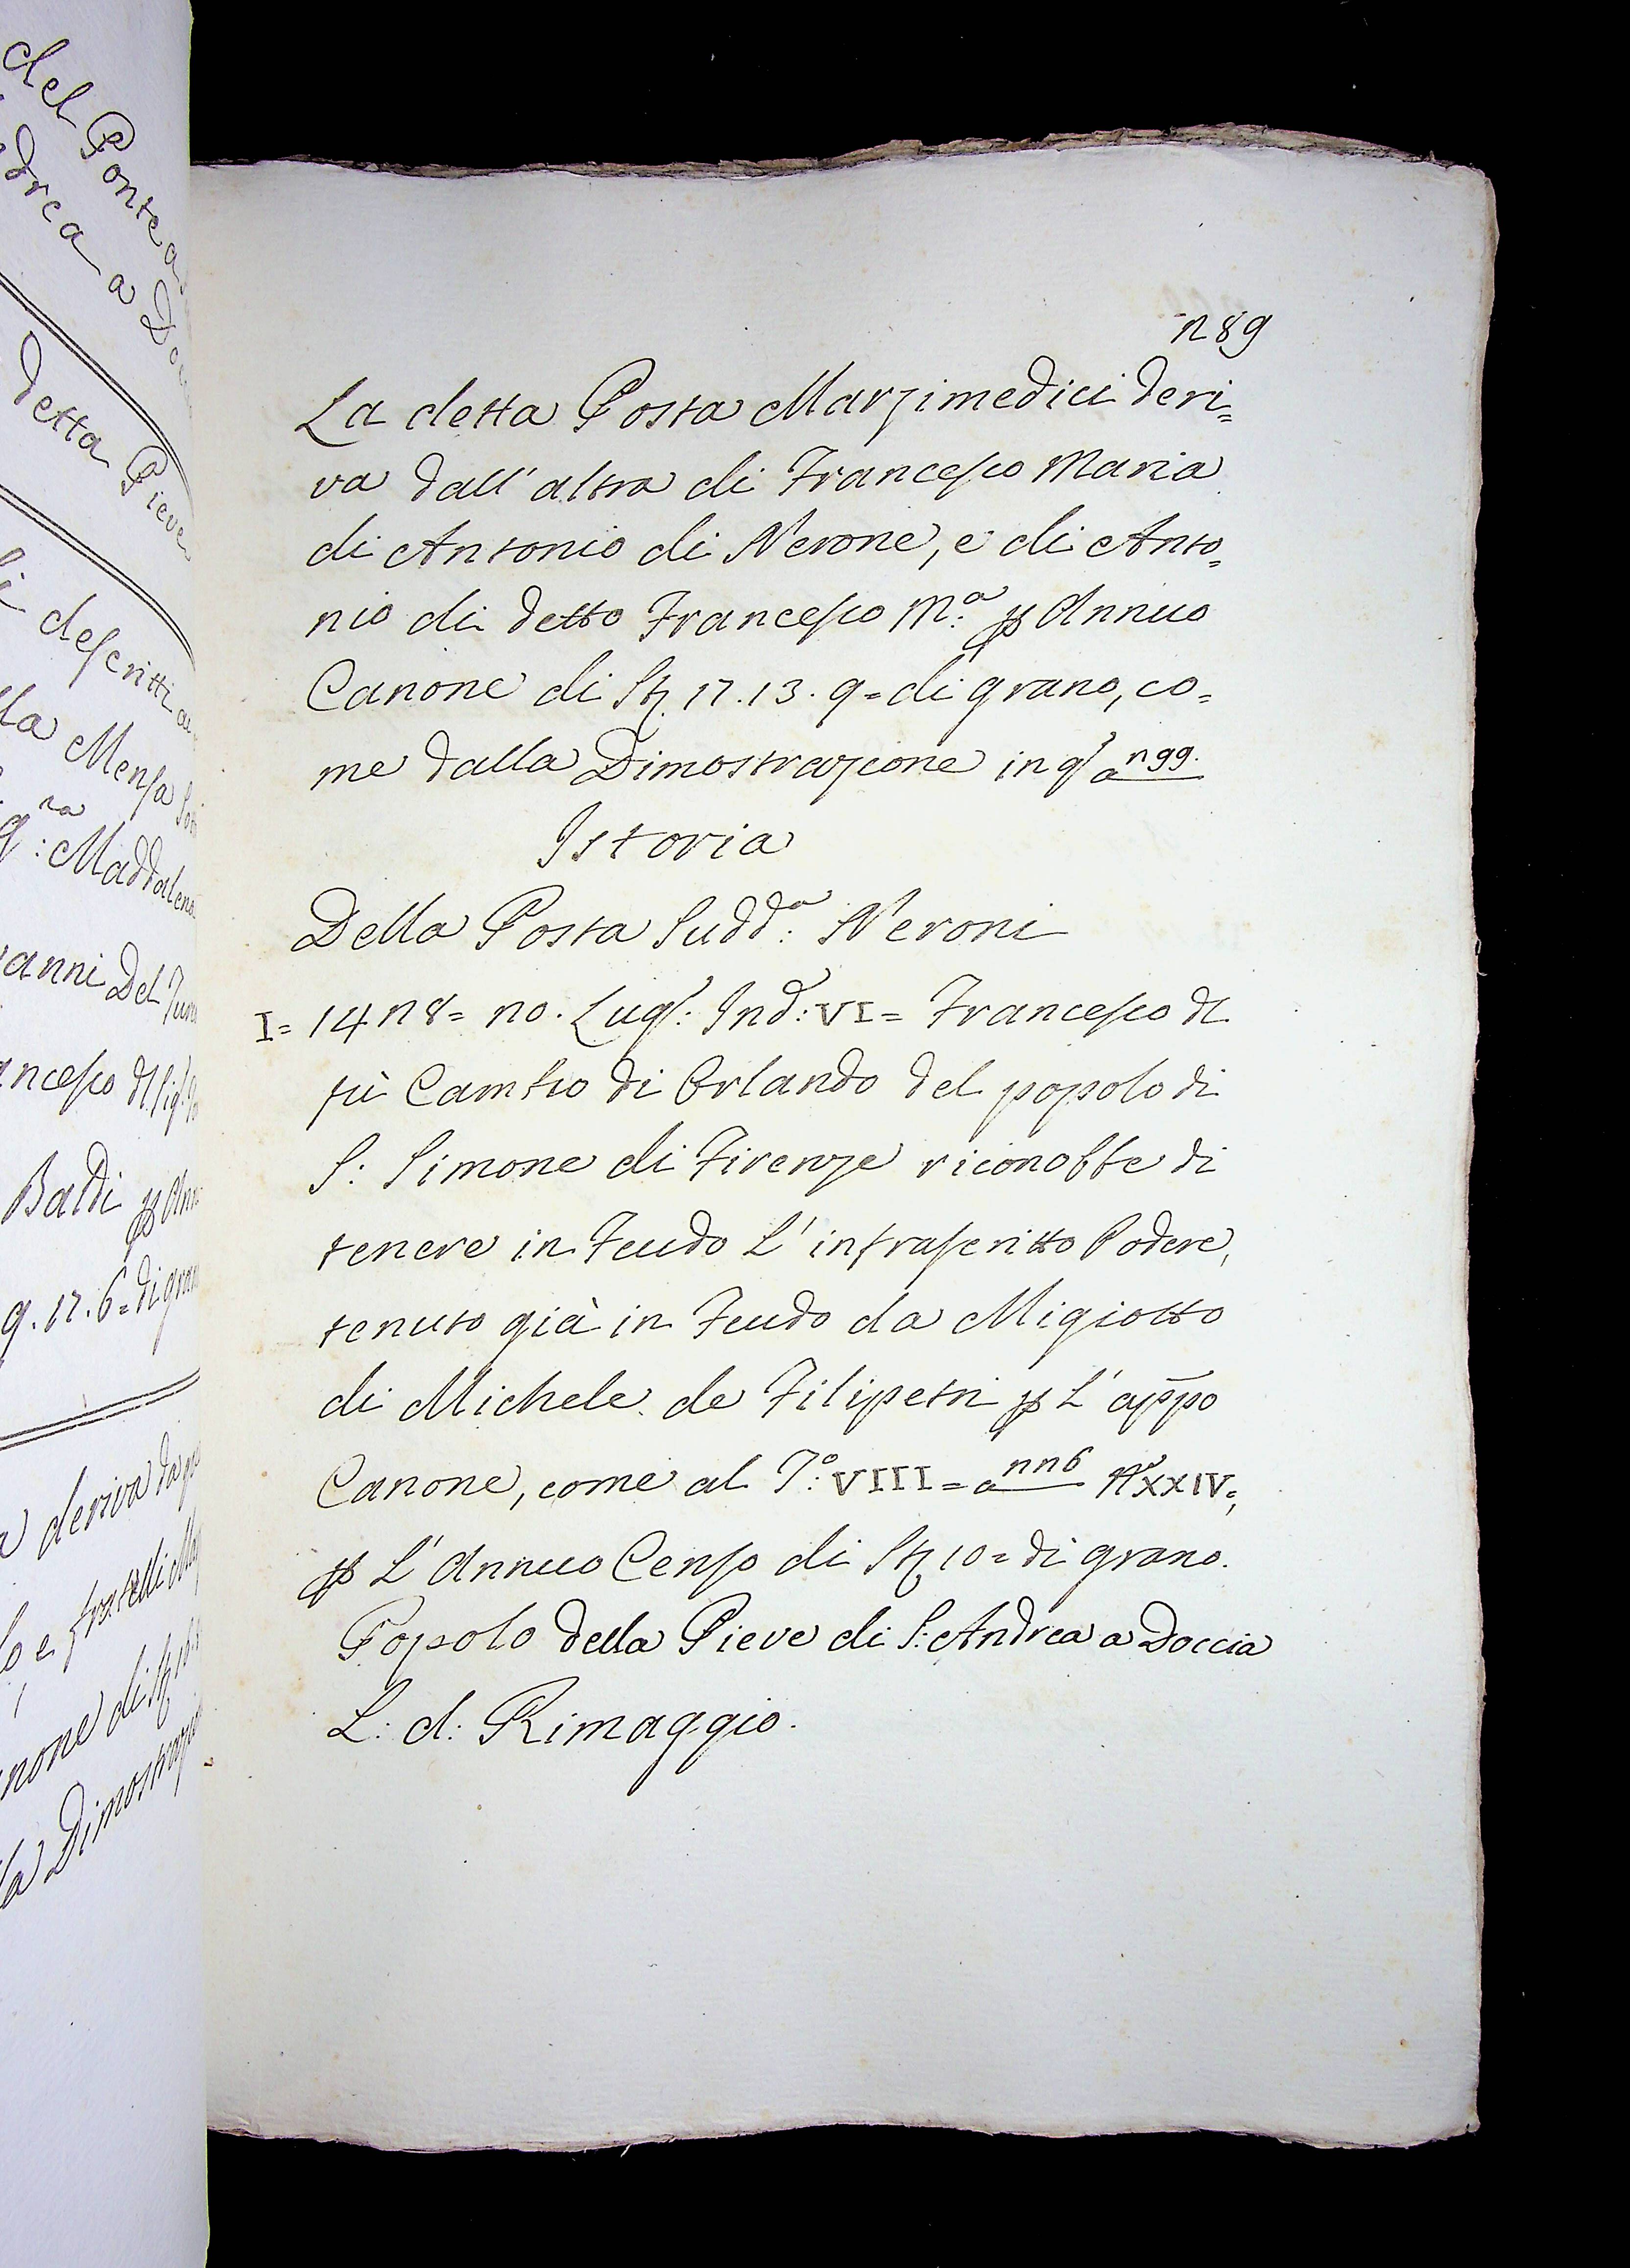 del Ponte a
drea a Doc
detta Pieve
descritti
la Mensa
Maddalena
anni Del
ancesco
Baldi p Ann
9. 17. 6 = di gran
deriva da
e fratelli
none di
Dimostrazio
289
La detta Posta Marzimedici deri=
va dall' altra di Francesco Maria
di Antonio di Nerone, e di Anto=
nio di detto Francesco M.a p Annuo
Canone di St. 17. 13. 9 = di grano, co=
me dalla Dimostrazione in q.o a 299.
Istoria
Della Posta Sudd.a Neroni
I = 1428 = 20. Lug.: Ind: VI = Francesco dl
fù Cambio di Orlando del popolo di
S: Simone di Firenze riconobbe di
tenere in Feudo L' infrascritto Podere,
tenuto già in Feudo da Migiotto
di Michele de Filipetri p L' appo
Canone, come al T.o: VIII = a 226 N XXIV =,
p L' Annuo Censo di St 10 = di grano.
Popolo della Pieve di S: Andrea a Doccia
L: d: Rimaggio.